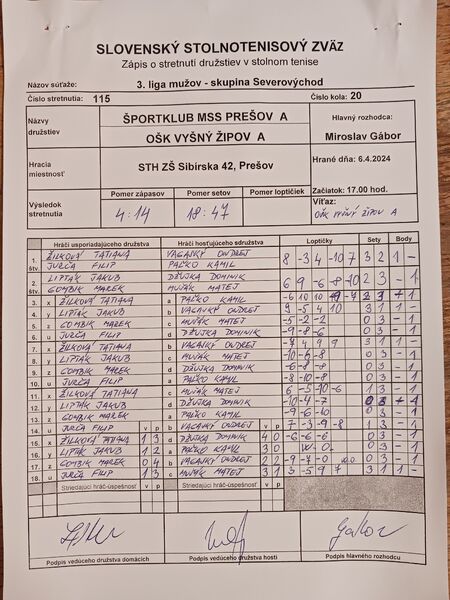 SLOVENSKÝ STOLNOTENISOVÝ ZVÄZ
Zápis o stretnutí družstiev v stolnom tenise
Názov súťaže: 3. liga mužov - skupina Severovýchod
Číslo stretnutia: 115 Číslo kola: 20
Názvy družstiev
ŠPORTKLUB MSS PREŠOV A
OŠK VYŠNÝ ŽIPOV A
Hlavný rozhodca:
Miroslav Gábor
Hracia miestnosť
STH ZŠ Sibírska 42, Prešov
Hrané dňa: 6.4.2024
Začiatok: 17.00 hod.
Výsledok stretnutia
Pomer zápasov Pomer setov Pomer loptičiek
4:14 18:47
Víťaz:
OŠK VYŠNÝ ŽIPOV A
Hráči usporiadajúceho družstva Hráči hosťujúceho družstva Loptičky Sety Body
1. štv. ŽILKOVÁ TATIANA VAGASKÝ ONDREJ 8 -3 4 -10 7 3 2 1 -
JURČA FILIP PAĽKO KAMIL
2. štv. LIPTÁK JAKUB DŽUJKA DOMINIK 6 9 -6 -8 -10 2 3 - 1
GOMBIK MAREK MUŇÁK MATEJ
3. x ŽILKOVÁ TATIANA a PAĽKO KAMIL
4. y LIPTÁK JAKUB b VAGASKÝ ONDREJ 9 -5 4 10 3 1 1 -
5. z GOMBIK MAREK c MUŇÁK MATEJ -5 -2 -2 0 3 - 1
6. u JURČA FILIP d DŽUJKA DOMINIK -9 -8 -6 0 3 - 1
7. x ŽILKOVÁ TATIANA b VAGASKÝ ONDREJ -7 4 9 9 3 1 1 -
8. y LIPTÁK JAKUB c MUŇÁK MATEJ 0 3 - 1
9. z GOMBIK MAREK d DŽUJKA DOMINIK -6 -8 -8 0 3 - 1
10. u JURČA FILIP a PAĽKO KAMIL -8 -10 -8 0 3 - 1
11. x ŽILKOVÁ TATIANA c MUŇÁK MATEJ 6 -5 -10 -6 1 3 - 1
12. y LIPTÁK JAKUB d DŽUJKA DOMINIK -10 -4 -7 0 3
13. z GOMBIK MAREK a PAĽKO KAMIL -9 -6 -10 0 3 - 1
14. u JURČA FILIP v p b VAGASKÝ ONDREJ v p 7 -3 -9 -8 1 3 - 1
15. x ŽILKOVÁ TATIANA 1 3 d DŽUJKA DOMINIK 4 0 -6 -6 -6 0 3 - 1
16. y LIPTÁK JAKUB 1 2 a PAĽKO KAMIL 3 0 w.o. 0 3 - 1
17. z GOMBIK MAREK 0 4 b VAGASKÝ ONDREJ 2 2 -9 -7 -0 0 3 - 1
18. u JURČA FILIP 1 3 c MUŇÁK MATEJ 3 1 3 -5 9 7 3 1 1 -
Striedajúci hráč-úspešnosť v p Striedajúci hráč-úspešnosť v p
Podpis vedúceho družstva domácich Podpis vedúceho družstva hostí Podpis hlavného rozhodcu